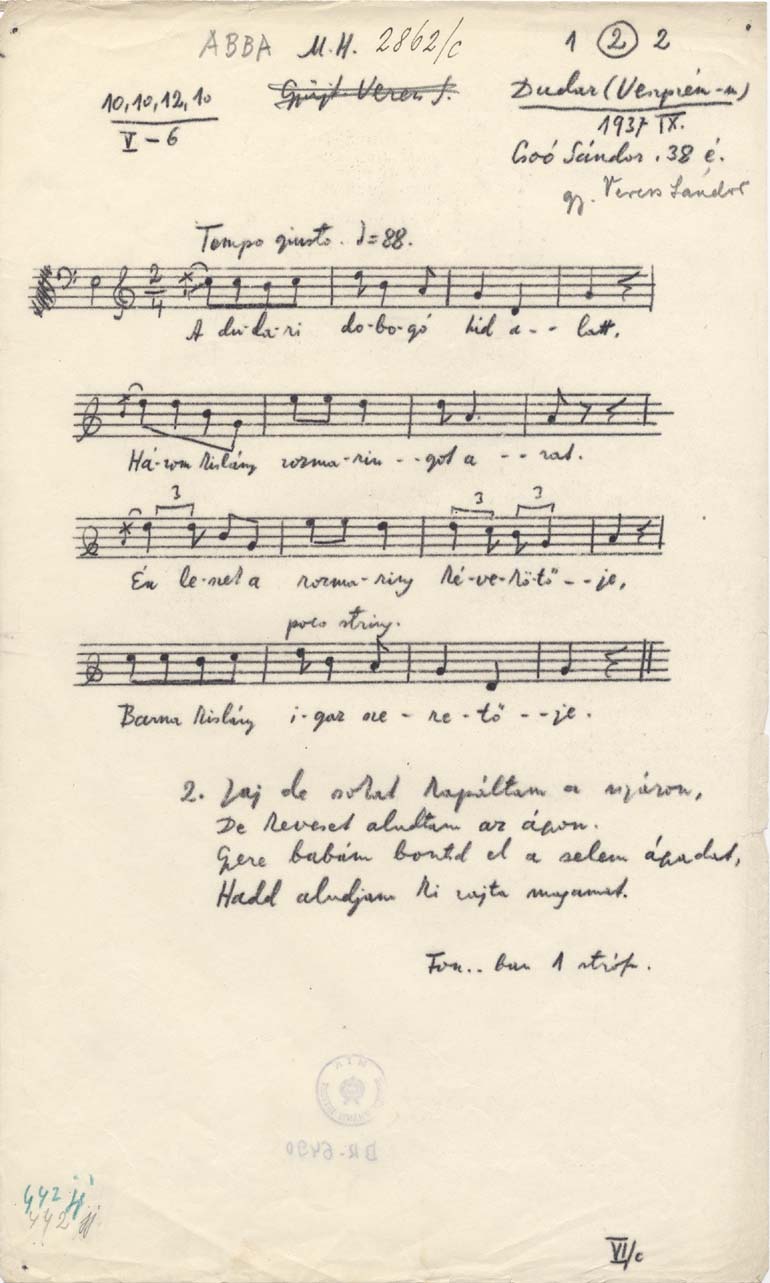 ABBA M.H. 2862/c 1 2 2
10, 10, 12, 10
V – 6
Gyűjt. Veress S.
Dudar (Veszprém-m)
1937 IX.
Csoó Sándor. 38 é.
gy. Veress Sándor
Tempo giusto. ♩=88.
2/4
A du-da-ri do-bo-gó hid a - - latt,
Há-rom kislány rozma-rin - - got a - - rat.
3 3 3
Én le-szek a rozma-ring ké-ve-kö-tő - - je,
poco string.
Barna kislány i-gaz sze - re - tő - - je.
2. Jaj de sokat kapáltam a nyáron,
De keveset aludtam az ágyon.
Gyere babám bontsd el a selem ágyadat,
Hadd aludjam ki rajta magamat.
Fon.. ban 1 stróf.
DR-6490
442 jj
442 jj
VI/c